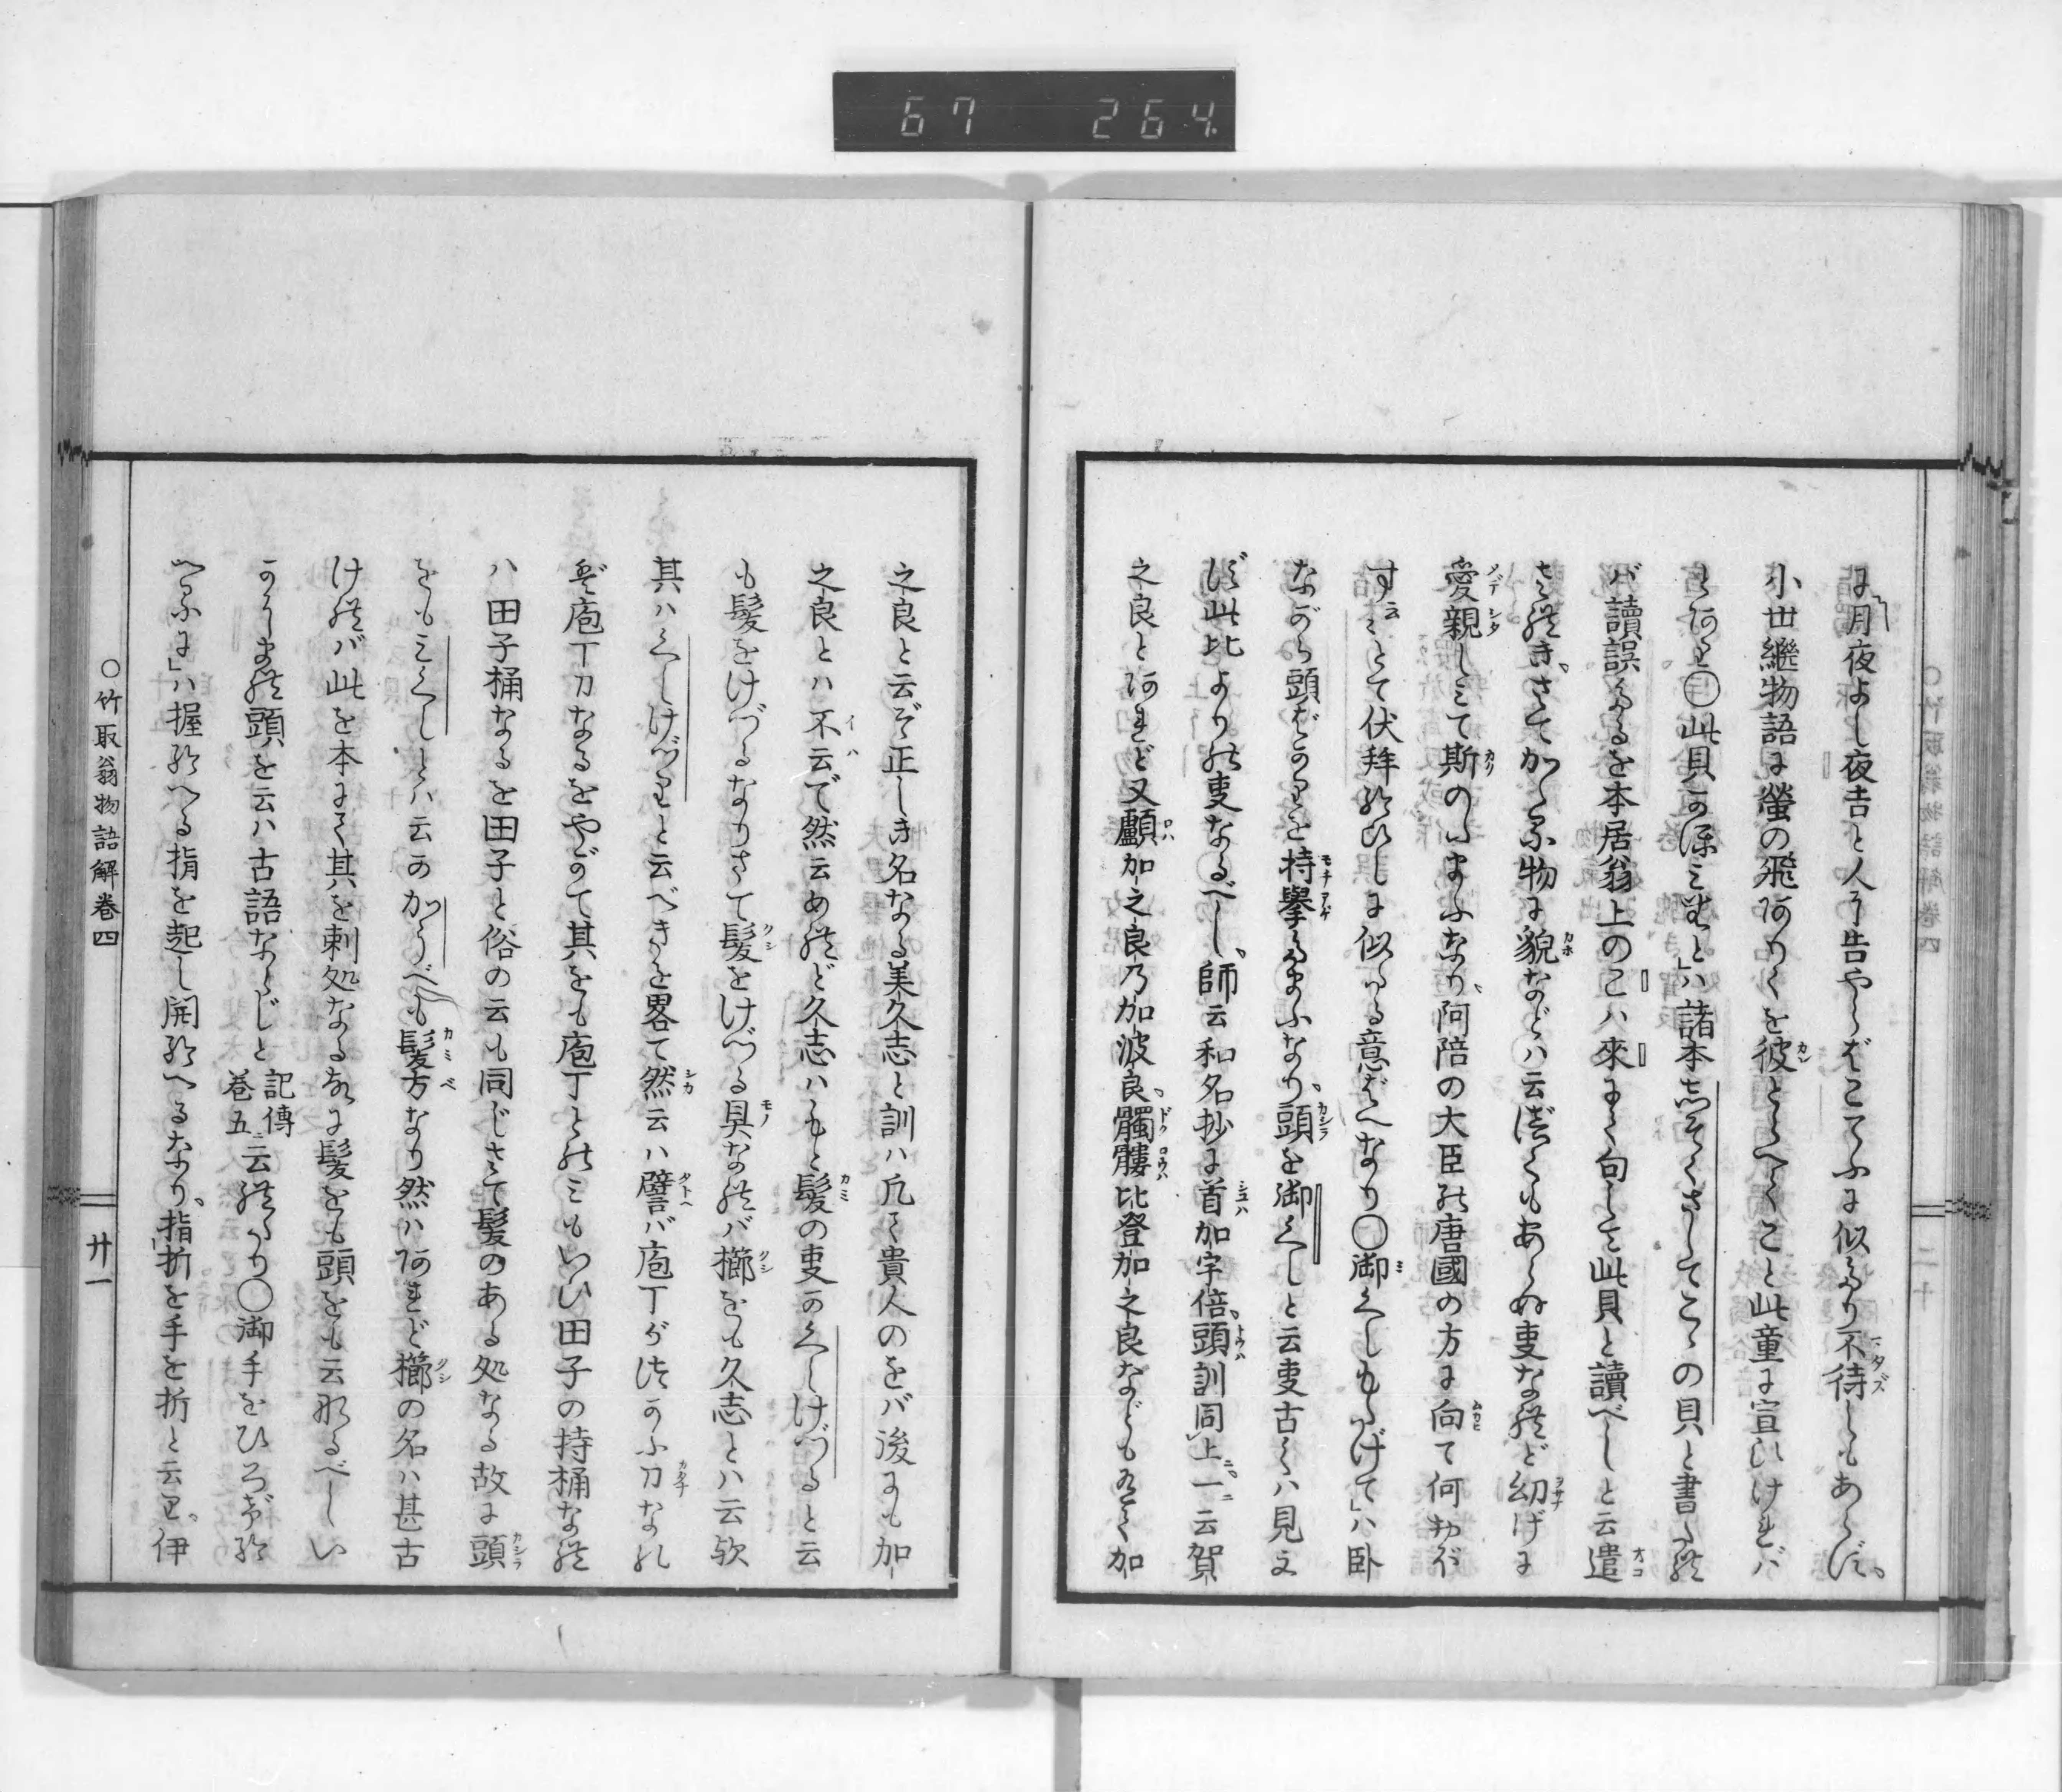 67 264
に月夜よし夜吉と人に告やらばこてふに似たり不待しもあらず、
小世継物語に螢の飛ありくを彼とらへてこと此童に宣ひけれバ
とあり○此貝かほミせと」ハ諸本志そくさしてこゝの貝と書たれ
バ讀誤たるを本居翁上のこハ來にて句して此貝と讀べしと云遣
されき、さてかゝる物に貌などハ云まじくもあらぬ事なれど幼げに
愛親しミて斯のたまふなり、阿陪の大臣の唐國の方に向て何
すミとて伏拜給ひしに似たる意ばへなり○御ぐしもたげて」ハ臥
ながら頭ばかりを持擧たまふなり、頭を御ぐしと云事古くハ見え
ず此比よりの事なるべし、師云和名抄に首加宇倍、頭訓同上一云賀
之良とあれど又顱加之良乃加波良、髑髏比登加之良などもありて加
之良と云ぞ正しき名なる美久志と訓ハ凡て貴人のをバ後にも加
之良とハ不云で然云めれど久志ハもと髮の事かくしけづると云
も髮をけづるなりさて髮をけづる具なれバ櫛をも久志とハ云歟
其ハくしけづりと云べきを畧て然云ハ譬バ庖丁が仕かふ刀なれ
ば庖丁刀なるをやがて其をも庖丁とのミもいひ田子の持桶なれ
ハ田子桶なるを田子と俗の云も同じさて髮のある処なる故に頭
をもミぐしとハ云かかうべも髮方なり然ハあれど櫛の名ハ甚古
ければ此を本にて其を刺処なる故に髮をも頭をも云なるべしい
かにまれ頭を云ハ古語ならじと記傳巻五ニ云れたり○御手をひろげ給
へるに」ハ握給へる指を起し開給へるなり、指折を手を折と云り、伊
○竹取翁物語解巻四
廿一